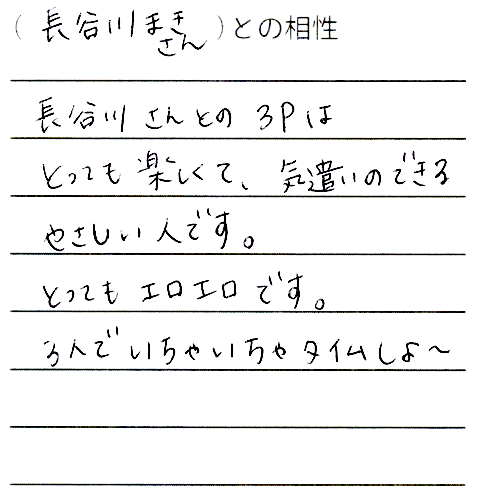 (長谷川まきさん)との相性
長谷川さんとの3Pは
とっても楽しくて、気遣いのできる
やさしい人です。
とってもエロエロです。
3人でいちゃいちゃタイムしよ〜